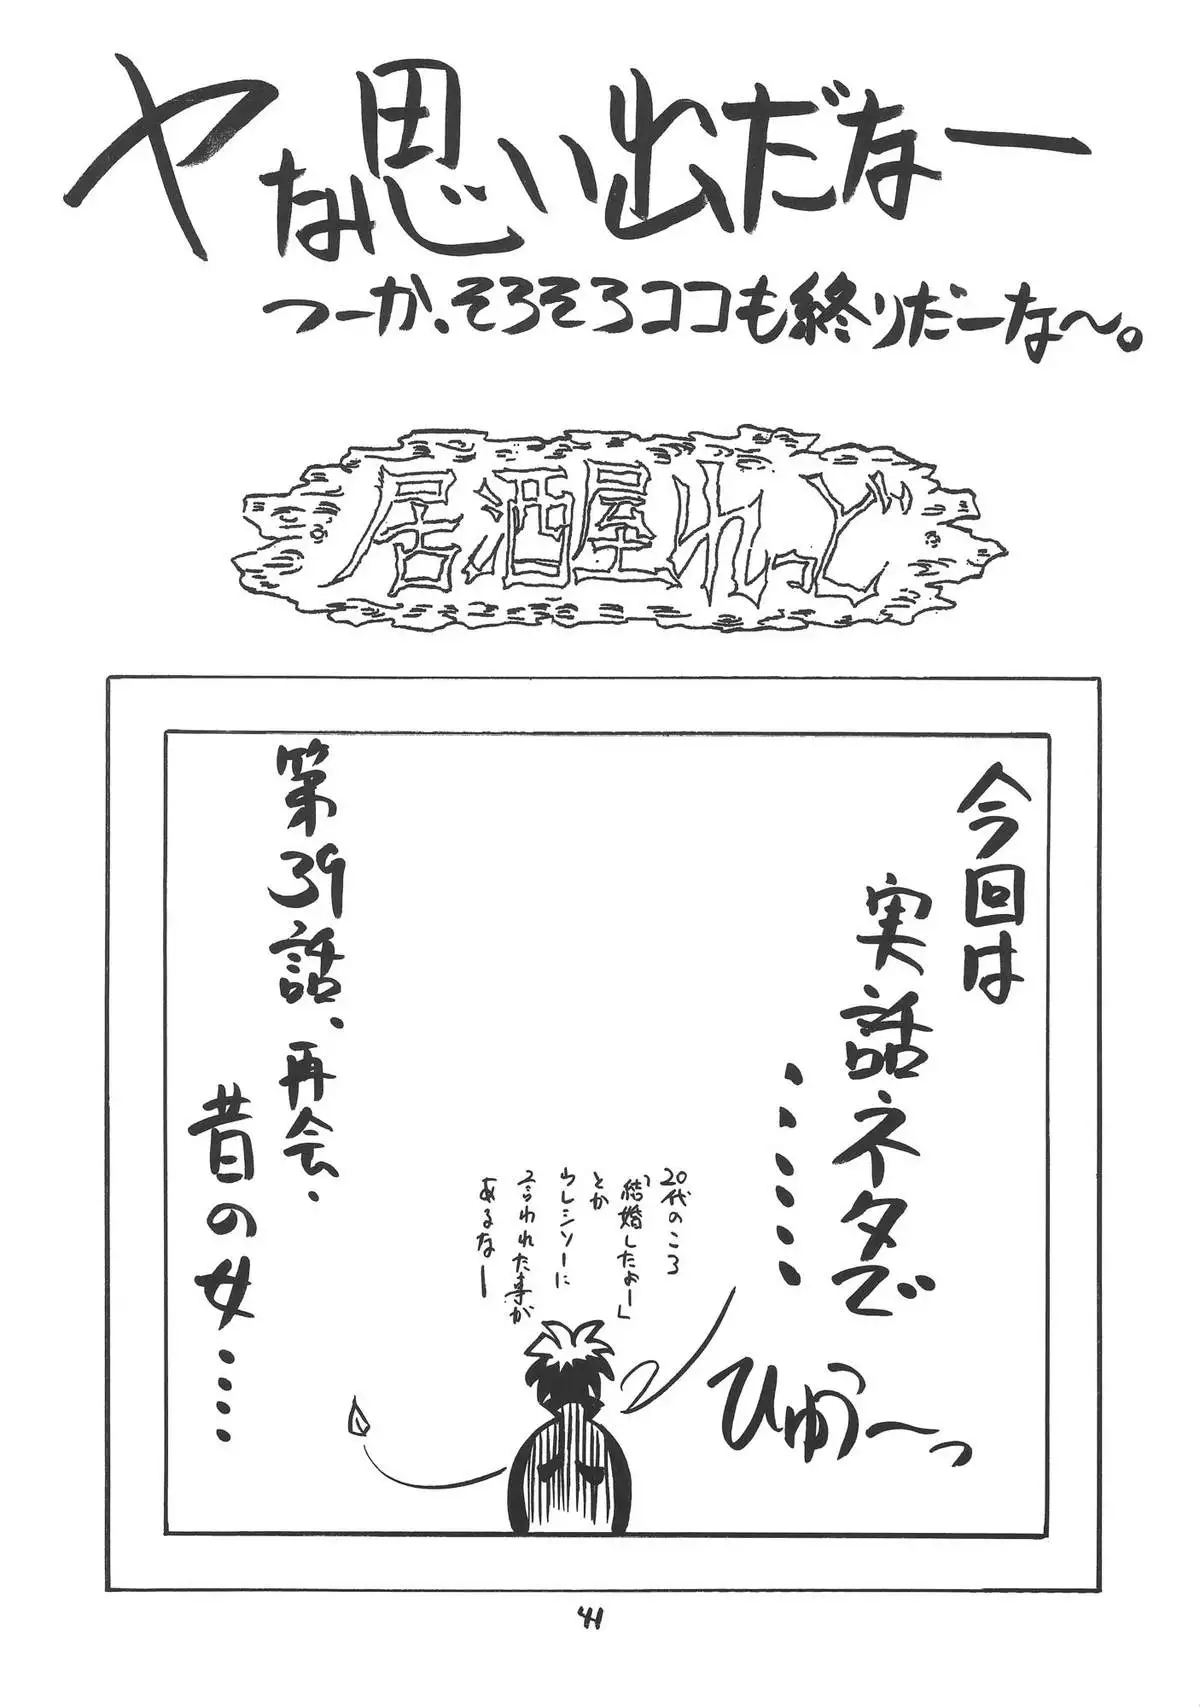 ヤな思い出だなー
つーか、そろそろココも終りだーな〜。
居酒屋れっど
今回は
実話ネタで
‥‥‥‥
ひゅう〜っ
20代のころ
「結婚したよー」
とか
ウレシソーに
言われた事が
あるなー
第39話、再会、
昔の女‥‥
41